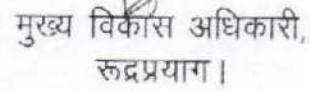 मुख्य विकास अधिकारी,
रूद्रप्रयाग।